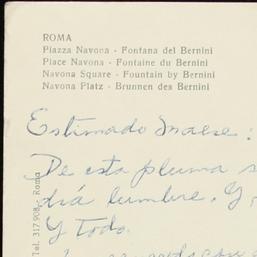 ROMA
Piazza Navona - Fontana del Bernini
Place Navona - Fontaine du Bernini
Navona Square - Fountain by Bernini
Navona Platz - Brunnen des Bernini
Estimado Maese:
De esta pluma s
diá lumbre. Y,
Y Todo.
Tel. 317.908 - Roma